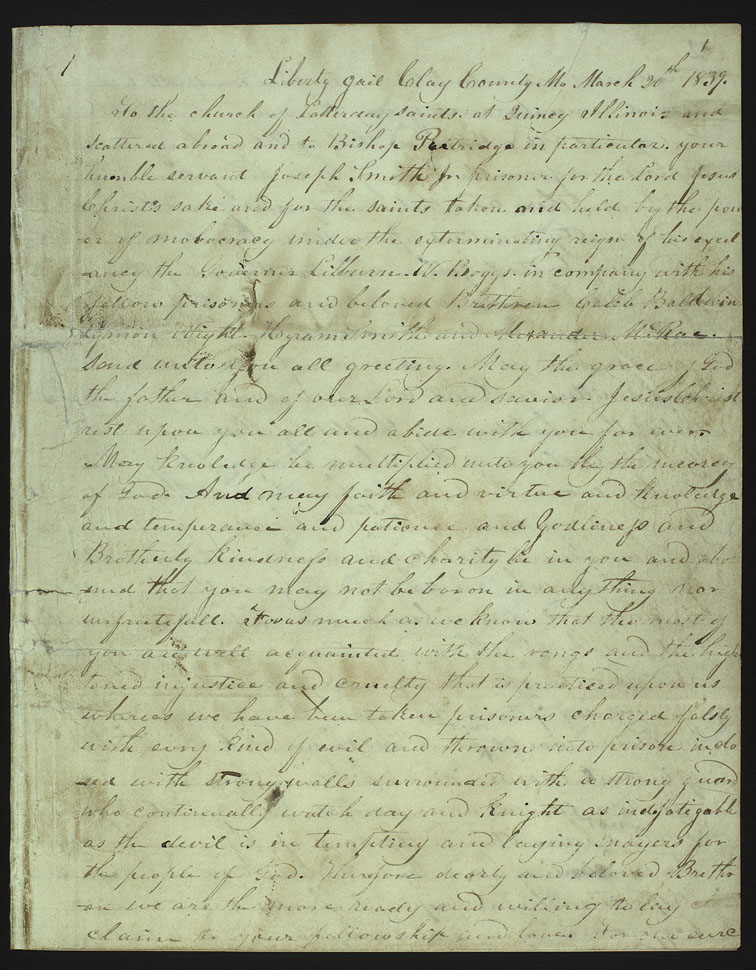 1
1
Liberty Jail Clay County Mo March 20th 1839.
To the church of Latterday saints at Quincy Illinois and
scattered abroad and to Bishop Partridge in particular. your
humble servant Joseph Smith Jr prisoner for the Lord Jesus
Christ's sake and for the saints taken and held by the pow
er of mobocracy under the exterminating reign of his excel
ancy the Governer Lilburn W. Boggs in company with his
fellow prisoners and beloved Brethren Caleb Baldwin
Lymon Wight. Hyram Smith and Alexander McRae.
Send unto you all greeting. May the grace of God
the father and of our Lord and savior Jesus Christ
rest upon you all and abide with you for ever.
May knoledge be multiplied unto you by the meorcy
of God. And may faith and virtue and knoledge
and temperance and patience and Godliness and
Brotherly kindness and charity be in you and abo
und that you may not be baron in anything nor
unfrutefull. Forasmuch as we know that the most of
you are well acquainted with the rongs and the high
toned injustice and cruelty that is practiced upon us
whereas we have been taken prisoners charged falsly
with evry kind of evil and thrown into prison inclo
sed with strong walls surrounded with a strong guard
who continually watch day and knight as indefatigable
as the devil is in tempting and laying snayers for
the people of God. Therefore dearly and beloved Brethr
en we are the more ready and willing to lay
claim to your fellowship and love. For our curc